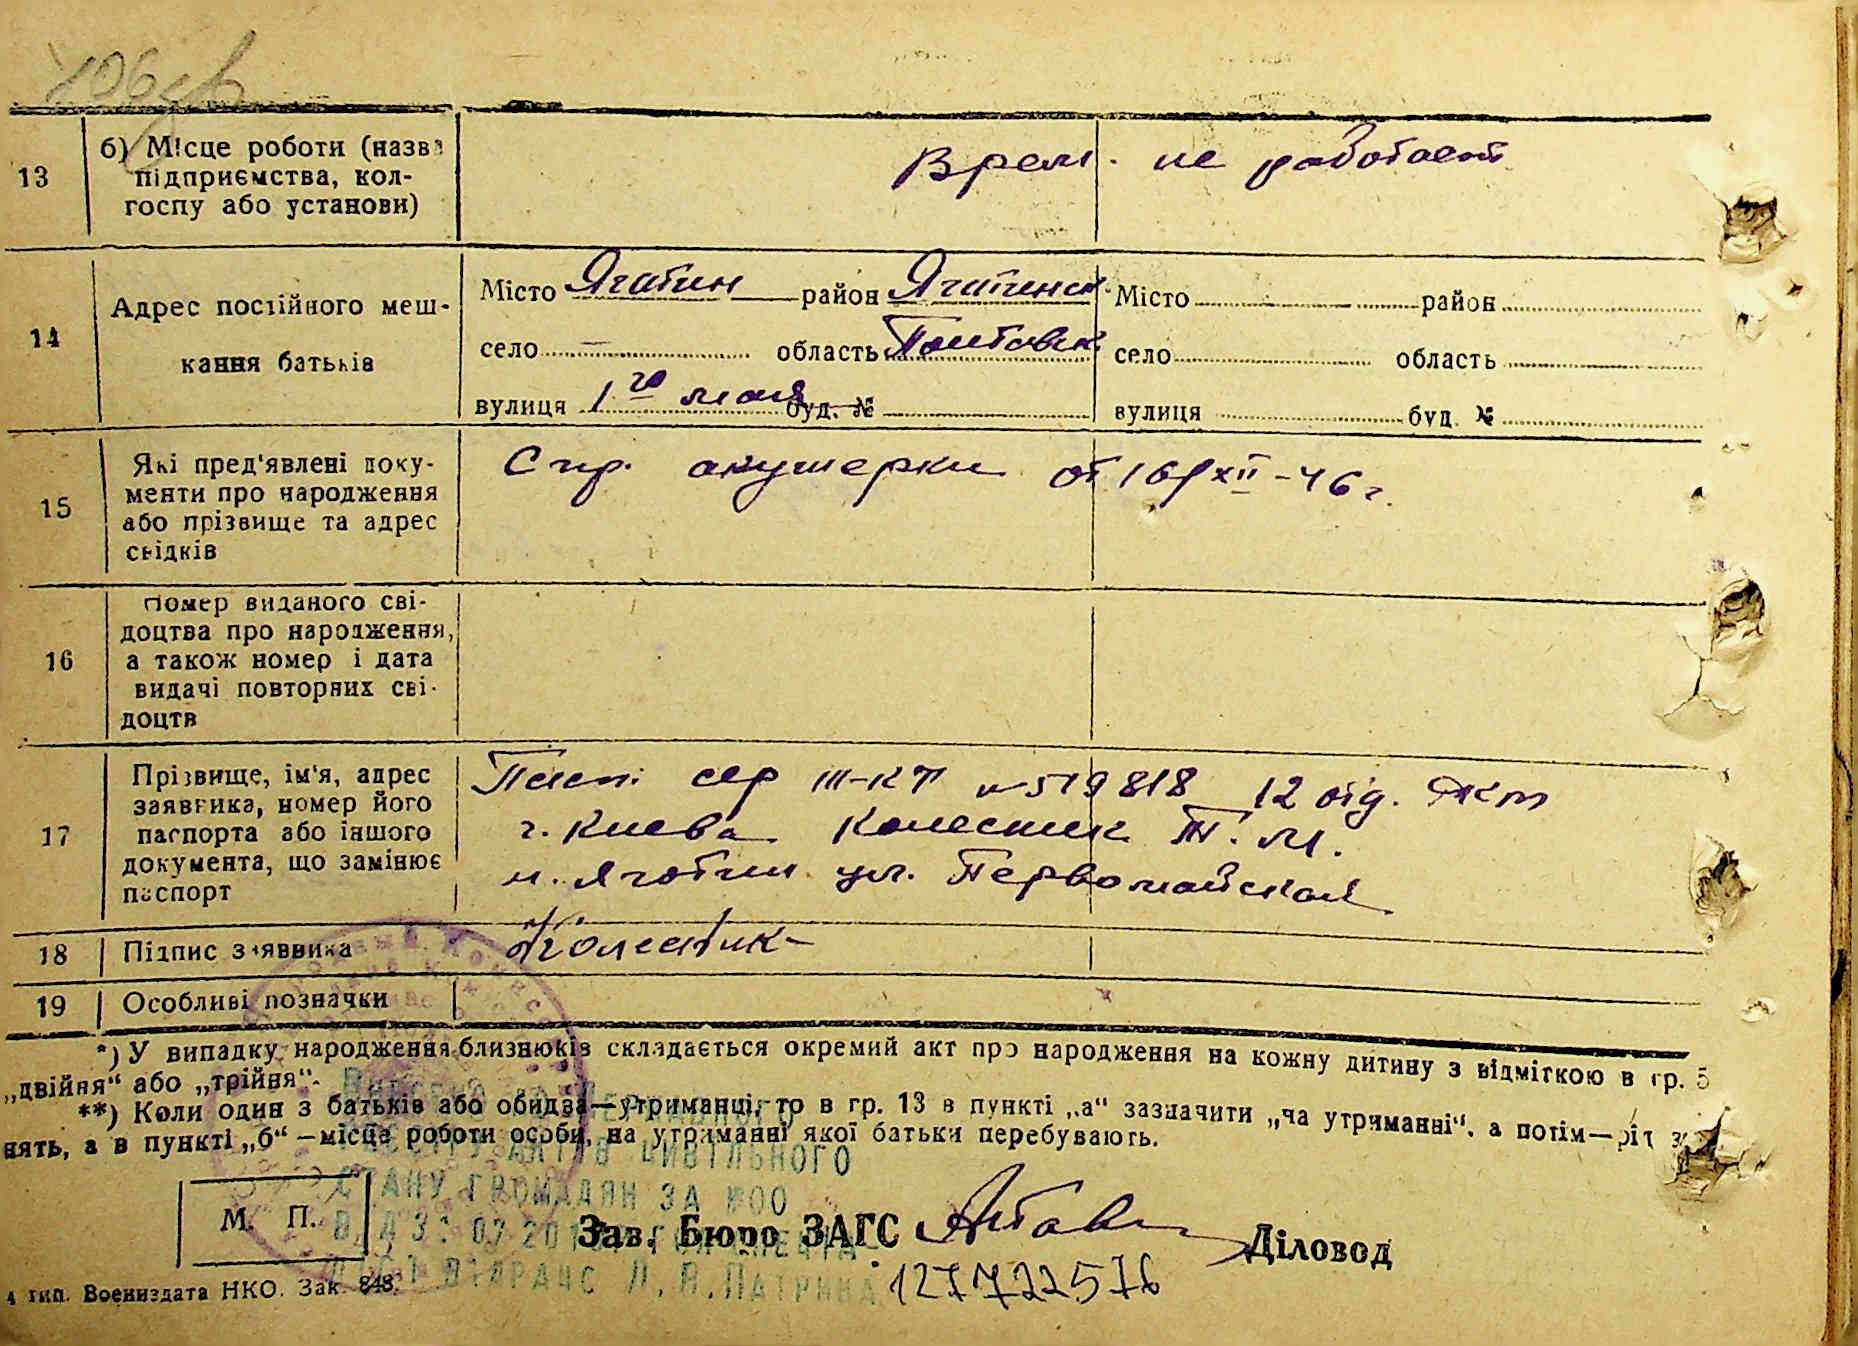 13
б) Місце роботи (назва
підприємства, кол-
госпу або установи)
Врем. не работает
14
Адрес постійного меш-
кання батьків
Місто Яготин район Яготинск. Місто район
село — область Полтавск. село область
вулиця 1го мая буд. № вулиця буд. №
15
Які пред'явлені доку-
менти про народження
або прізвище та адрес
свідків
Спр. акушерки от 16/XII-46 г.
16
Номер виданого сві-
доцтва про народження,
а також номер і дата
видачі повторних сві-
доцтв
17
Прізвище, ім'я, адрес
заявника, номер його
паспорта або іншого
документа, що замінює
паспорт
Пасп. сер III-КП № 519818 12 отд.
г. Киева Колесник М.
м. Яготин ул. Первомайская
18 Підпис заявника Колесник
19 Особливі позначки
*) У випадку народження близнюків складається окремий акт про народження на кожну дитину з відміткою в гр. 5
„двійня“ або „трійня“.
**) Коли один з батьків або обидва—утриманці, то в гр. 13 в пункті „а“ зазначити „на утриманні“, а потім—рід
нять, а в пункті „б“—місце роботи особи, на утриманні якої батьки перебувають.
Внесено до Державного
реєстру актів цивільного
стану громадян за №00
М. П.
Зав. Бюро ЗАГС Діловод
127722576
4 тип. Воениздата НКО. Зак. 848.